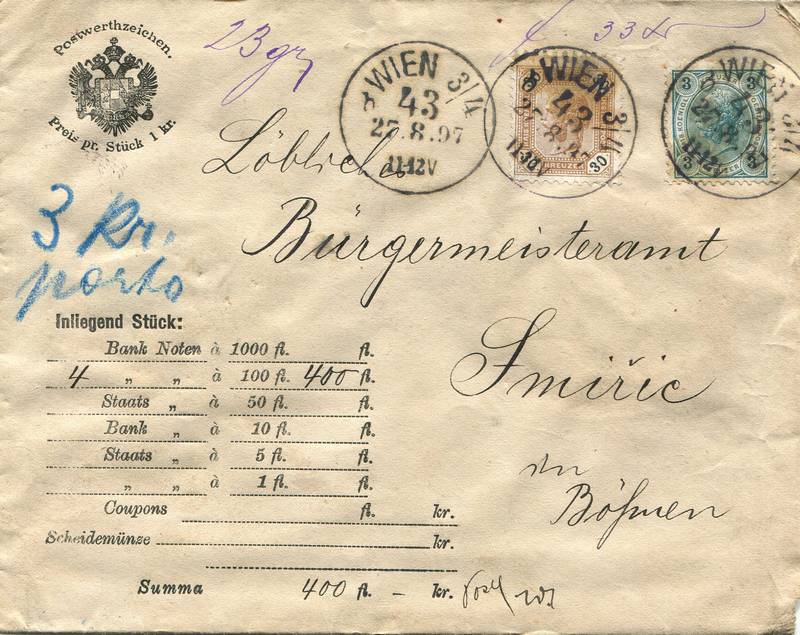 Postwerthzeichen.
Preis pr. Stück 1 kr.
23 gr
33 kr
WIEN 3/4
43
27.8.97
11-12V
WIEN 3/4
43
27.8.97
11-30V
30
KREUZER
30
WIEN 3/4
43
27.8.97
11-12V
3
3
3
3
Löbliches
Bürgermeisteramt
Smiřic
in
Böhmen
3 Kr.
porto
Inliegend Stück:
Bank Noten à 1000 fl. fl.
4 „ „ à 100 fl. 400 fl.
Staats „ à 50 fl. fl.
Bank „ à 10 fl. fl.
Staats „ à 5 fl. fl.
„ „ à 1 fl. fl.
Coupons fl. kr.
Scheidemünze kr.
Summa 400 fl. – kr.